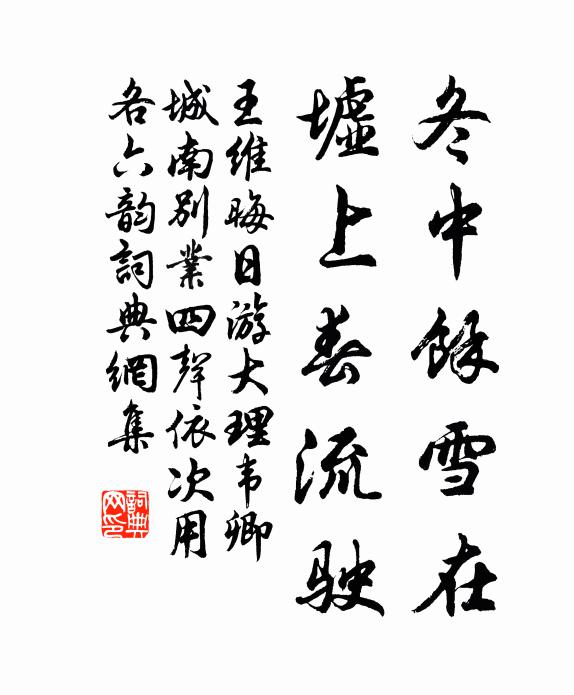 冬中餘雪在
墟上春流駛
王維晦日游大理韦卿
城南別業四聲依次用
各六韵詞典網集
詞典
网印